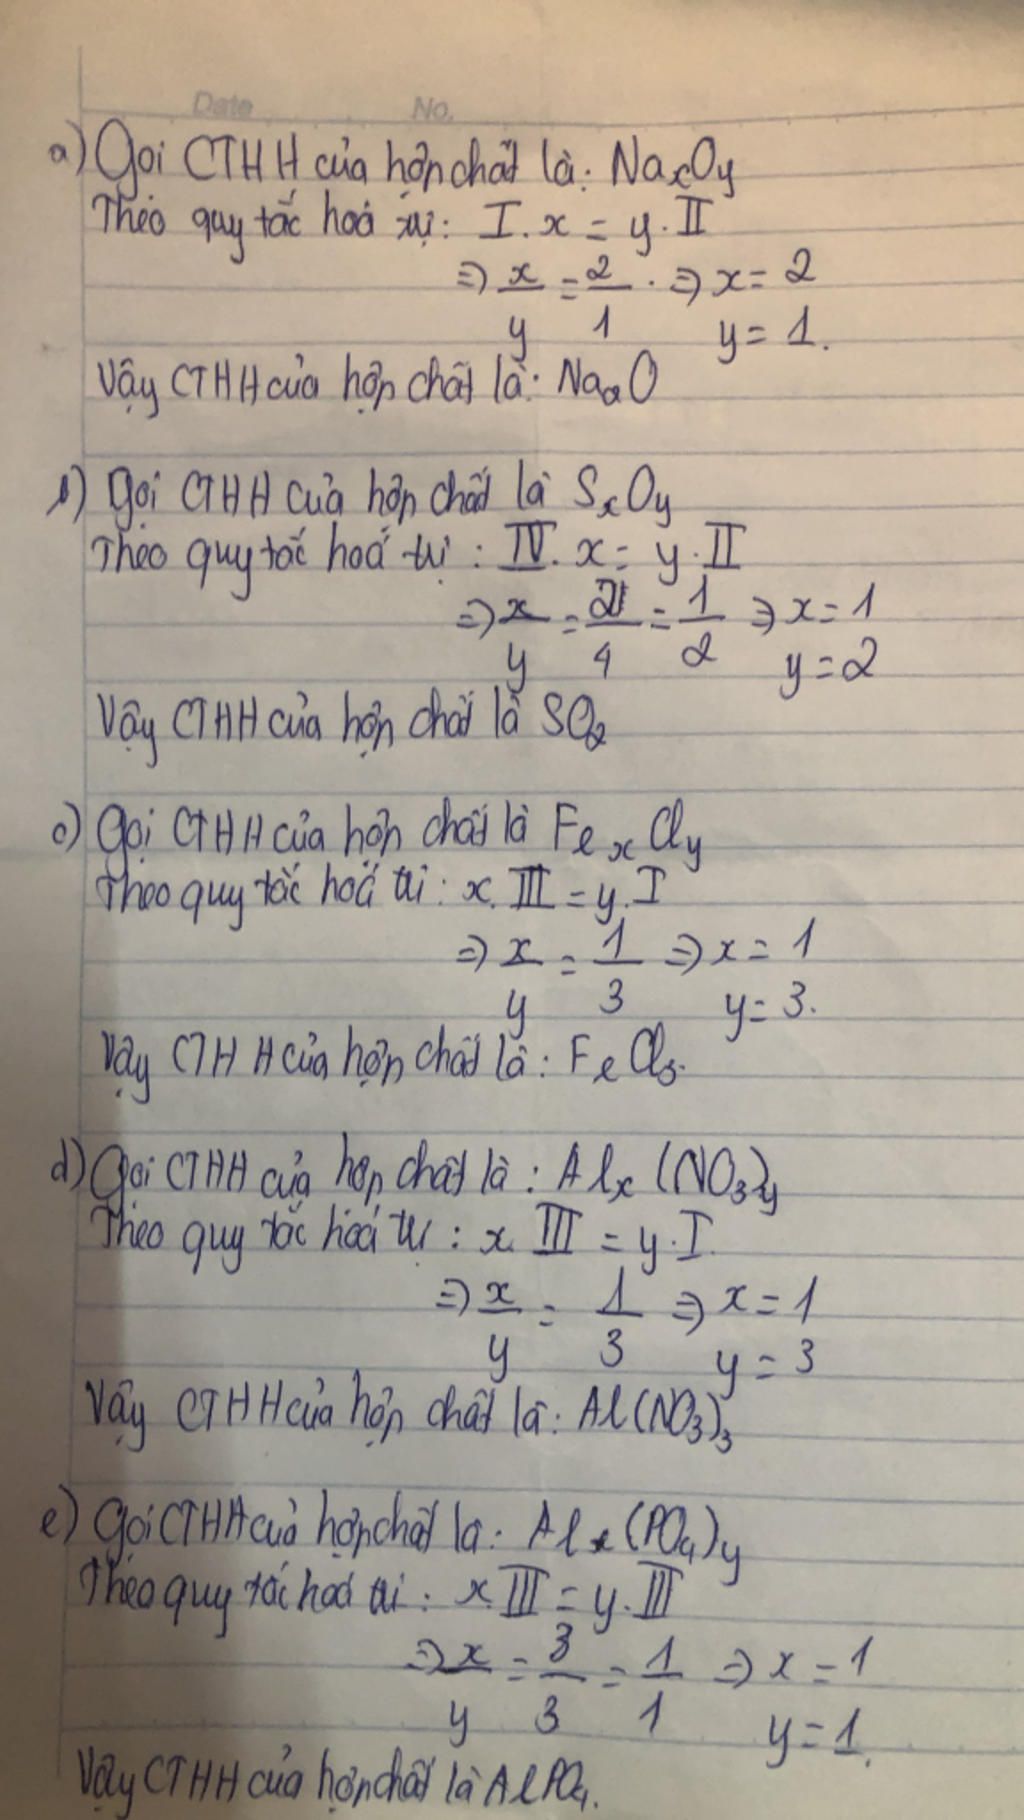 Date No.
a) Gọi CTHH của hợp chất là: NaxOy
Theo quy tắc hoá trị: I.x = y.II
=> x/y = 2/1 . => x = 2
y = 1.
Vậy CTHH của hợp chất là: Na2O
b) Gọi CTHH của hợp chất là SxOy
Theo quy tắc hoá trị: IV.x = y.II
=> x/y = 2/4 = 1/2 => x = 1
y = 2
Vậy CTHH của hợp chất là SO2
c) Gọi CTHH của hợp chất là FexCly
Theo quy tắc hoá trị: x.III = y.I
=> x/y = 1/3 => x = 1
y = 3.
Vậy CTHH của hợp chất là: FeCl3.
d) Gọi CTHH của hợp chất là: Alx(NO3)y
Theo quy tắc hoá trị: x.III = y.I
=> x/y = 1/3 => x = 1
y = 3
Vậy CTHH của hợp chất là: Al(NO3)3
e) Gọi CTHH của hợp chất là: Alx(PO4)y
Theo quy tắc hoá trị: x.III = y.III
=> x/y = 3/3 = 1/1 => x = 1
y = 1.
Vậy CTHH của hợp chất là AlPO4.